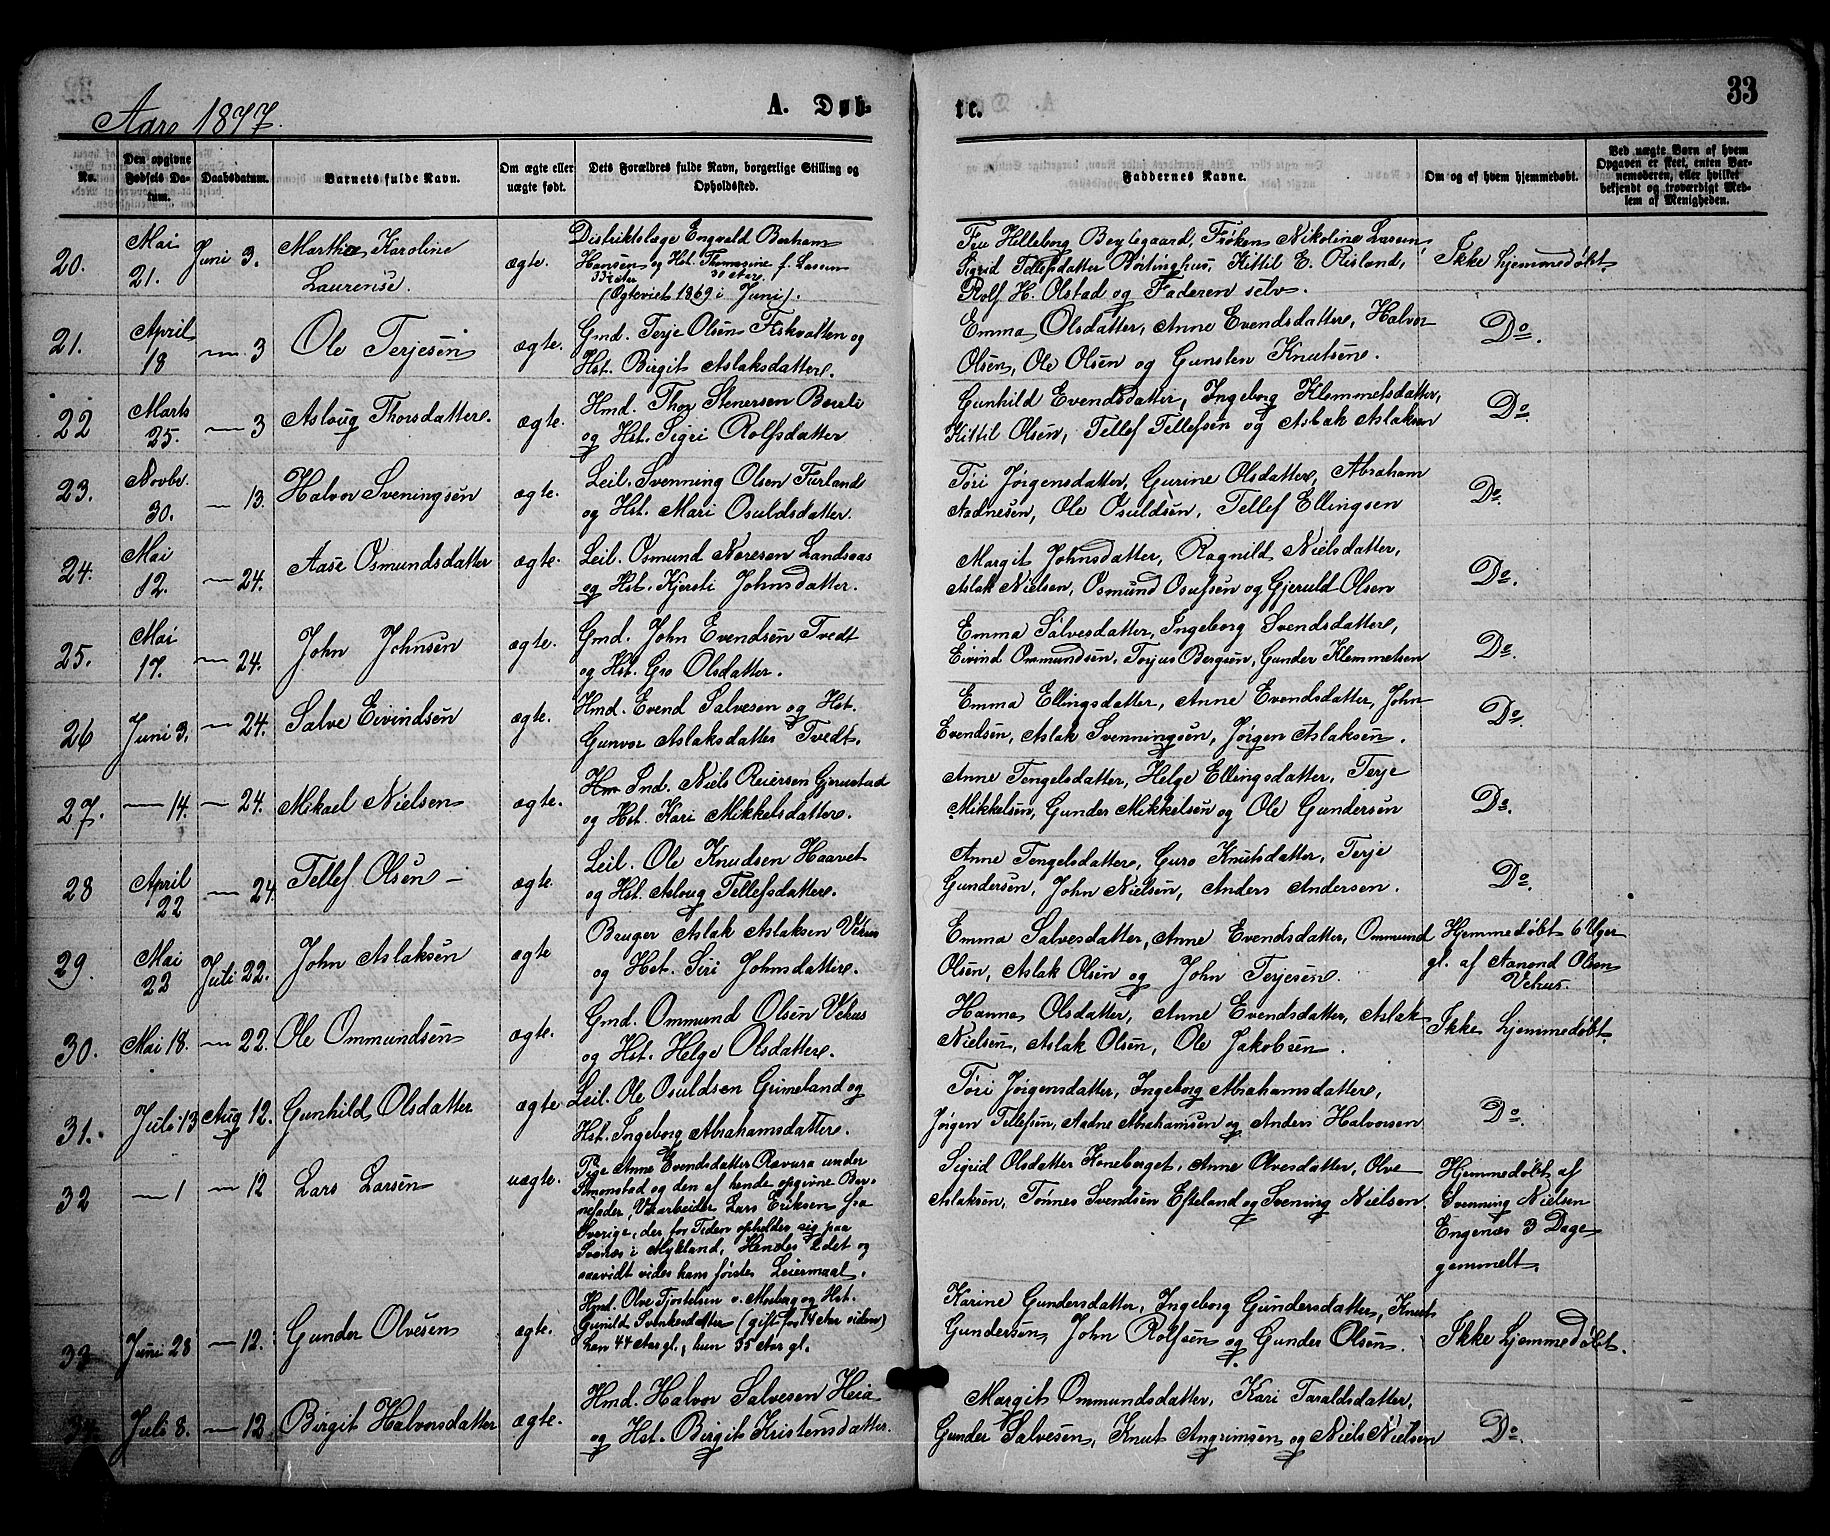 Aar 1877.
A. Døb-
te.
33
No.
Den opgivne Fødsels Datum.
Daabsdatum.
Barnets fulde Navn.
Om ægte eller uægte født.
Dets Forældres fulde Navn, borgerlige Stilling og Opholdssted.
Faddernes Navne.
Om og af hvem hjemmedøbt.
Ved uægte Barn af hvem Opgaven er skeet, enten Barnemoderen, eller hvilket bekjendt og troværdigt Medlem af Menigheden.
20. Mai 21. Juni 3. Martha Karoline Laurense. ægte.
Distriktslæge Engvald
Hansen og Hst. Thomasine f. Lassen
(Ægteviet 1869 i Juni).
Fru Helleborg Beylegaard, Frøken Nikoline Lassen,
Sigrid Tellefsdatter Kittil E. Risland,
Rolf H. Olstad og Faderen selv.
Ikke hjemmedøbt.
21. April 18 — 3 Ole Terjesen ægte.
Gmd. Terje Olsen Fiskvatten og
Hst. Birgit Aslaksdatter.
Emma Olsdatter, Anne Evendsdatter, Halvor
Olsen, Ole Olsen og Gunsten Knutsen.
Do.
22 Marts 25. — 3 Aslaug Thorsdatter. ægte.
Hmd. Thor Stenersen
og Hst. Sigri Rolfsdatter
Gunhild Evendsdatter, Ingeborg Klemmetsdatter,
Kittil Olsen, Tellef Tellefsen og Aslak Aslaksen
Do
23. Novbr. 30. — 13. Halvor Sveningsen ægte.
Leil. Svenning Olsen Furland
og Hst. Mari Osuldsdatter.
Tøri Jørgensdatter, Gurine Olsdatter, Abraham
Aadnesen, Ole Osuldsen, Tellef Ellingsen
Do.
24. Mai 12. — 24. Aase Osmundsdatter ægte.
Leil. Osmund Naresen Landsaas
og Hst. Kjersti Johnsdatter.
Margit Johnsdatter, Ragnild Nielsdatter,
Aslak Nielsen, Osmund Osufsen og Gjeruld Olsen
Do.
25. Mai 17. — 24. John Johnsen ægte.
Gmd. John Evendsen Tvedt
og Hst. Gro Olsdatter.
Emma Salvesdatter, Ingeborg Svendsdatter,
Eivind Ommundsen, Torjus Bergsen, Gunder Klemmetsen
Do.
26 Juni 3. — 24. Salve Eivindsen ægte.
Hmd. Evend Salvesen og Hst.
Gunvor Aslaksdatter Tvedt.
Emma Ellingsdatter, Anne Evendsdatter, John
Evendsen, Aslak Svenningsen, Jørgen Aslaksen.
Do.
27. — 14. — 24. Mikael Nielsen ægte.
Ind. Niels Reiersen Gjerustad
og Hst. Kari Mikkelsdatter.
Anne Tengelsdatter, Helge Ellingsdatter, Terje
Mikkelsen, Gunder Mikkelsen og Ole Gundersen
Do.
28 April 22 — 24. Tellef Olsen — ægte
Leil. Ole Knudsen Haavet
og Hst. Aslaug Tellefsdatter.
Anne Tengelsdatter, Guro Knutsdatter, Terje
Gundersen, John Nielsen, Anders Andersen.
Do.
29. Mai 23 Juli 22. John Aslaksen ægte
Bruger Aslak Aslaksen Vehus
og Hst. Siri Johnsdatter.
Emma Salvesdatter, Anne Evendsdatter, Ommund
Olsen, Aslak Olsen og John Terjesen.
Hjemmedøbt 6 Uger
gl. af Aanond Olsen
Vehus.
30. Mai 18. — 22. Ole Ommundsen ægte.
Gmd. Ommund Olsen Vehus
og Hst. Helge Olsdatter.
Hanna Olsdatter, Anne Evendsdatter, Aslak
Nielsen, Aslak Olsen, Ole Jakobsen.
Ikke hjemmedøbt.
31. Juli 13 Aug 12. Gunhild Olsdatter ægte
Leil. Ole Osuldsen Grimeland og
Hst. Ingeborg Abrahamsdatter.
Tøri Jørgensdatter, Ingeborg Abrahamsdatter,
Jørgen Tellefsen, Aadne Abrahamsen og Anders Halvorsen
Do.
32 — 1 — 12 Lars Larsen uægte.
Pige Anne Evendsdatter Ravura under
Simonstad og den af hende opgivne Bar-
nefader, Veiarbeider Lars Eriksen fra
Sverige, der for Tiden opholder sig paa
Svenes i Mykland, Hendes 2det og
saavidt vides hans første Leiermaal.
Sigrid Olsdatter Anne Olvesdatter, Olve
Aslaksen, Tønnes Svendsen Efteland og Svening Nielsen.
Hjemmedøbt af
Svenning Nielsen
Engenæs 3 Dage
gammelt
33 Juni 28 — 12. Gunder Olvesen ægte.
Hmd. Olve Tjostelsen og Hst.
Gunild (gift for 14 Aar siden)
han 44 Aar gl., hun 35 Aar gl.
Karine Gundersdatter, Ingeborg Gundersdatter, Knut
Gundersen, John Rolfsen og Gunder Olsen.
Ikke hjemmedøbt.
34 Juli 8. — 12. Birgit Halvorsdatter ægte.
Hmd. Halvor Salvesen Heia
og Hst. Birgit Kristensdatter.
Margit Ommundsdatter, Kari Taraldsdatter,
Gunder Salvesen, Knut Angrimsen og Niels Nielsen
Do.